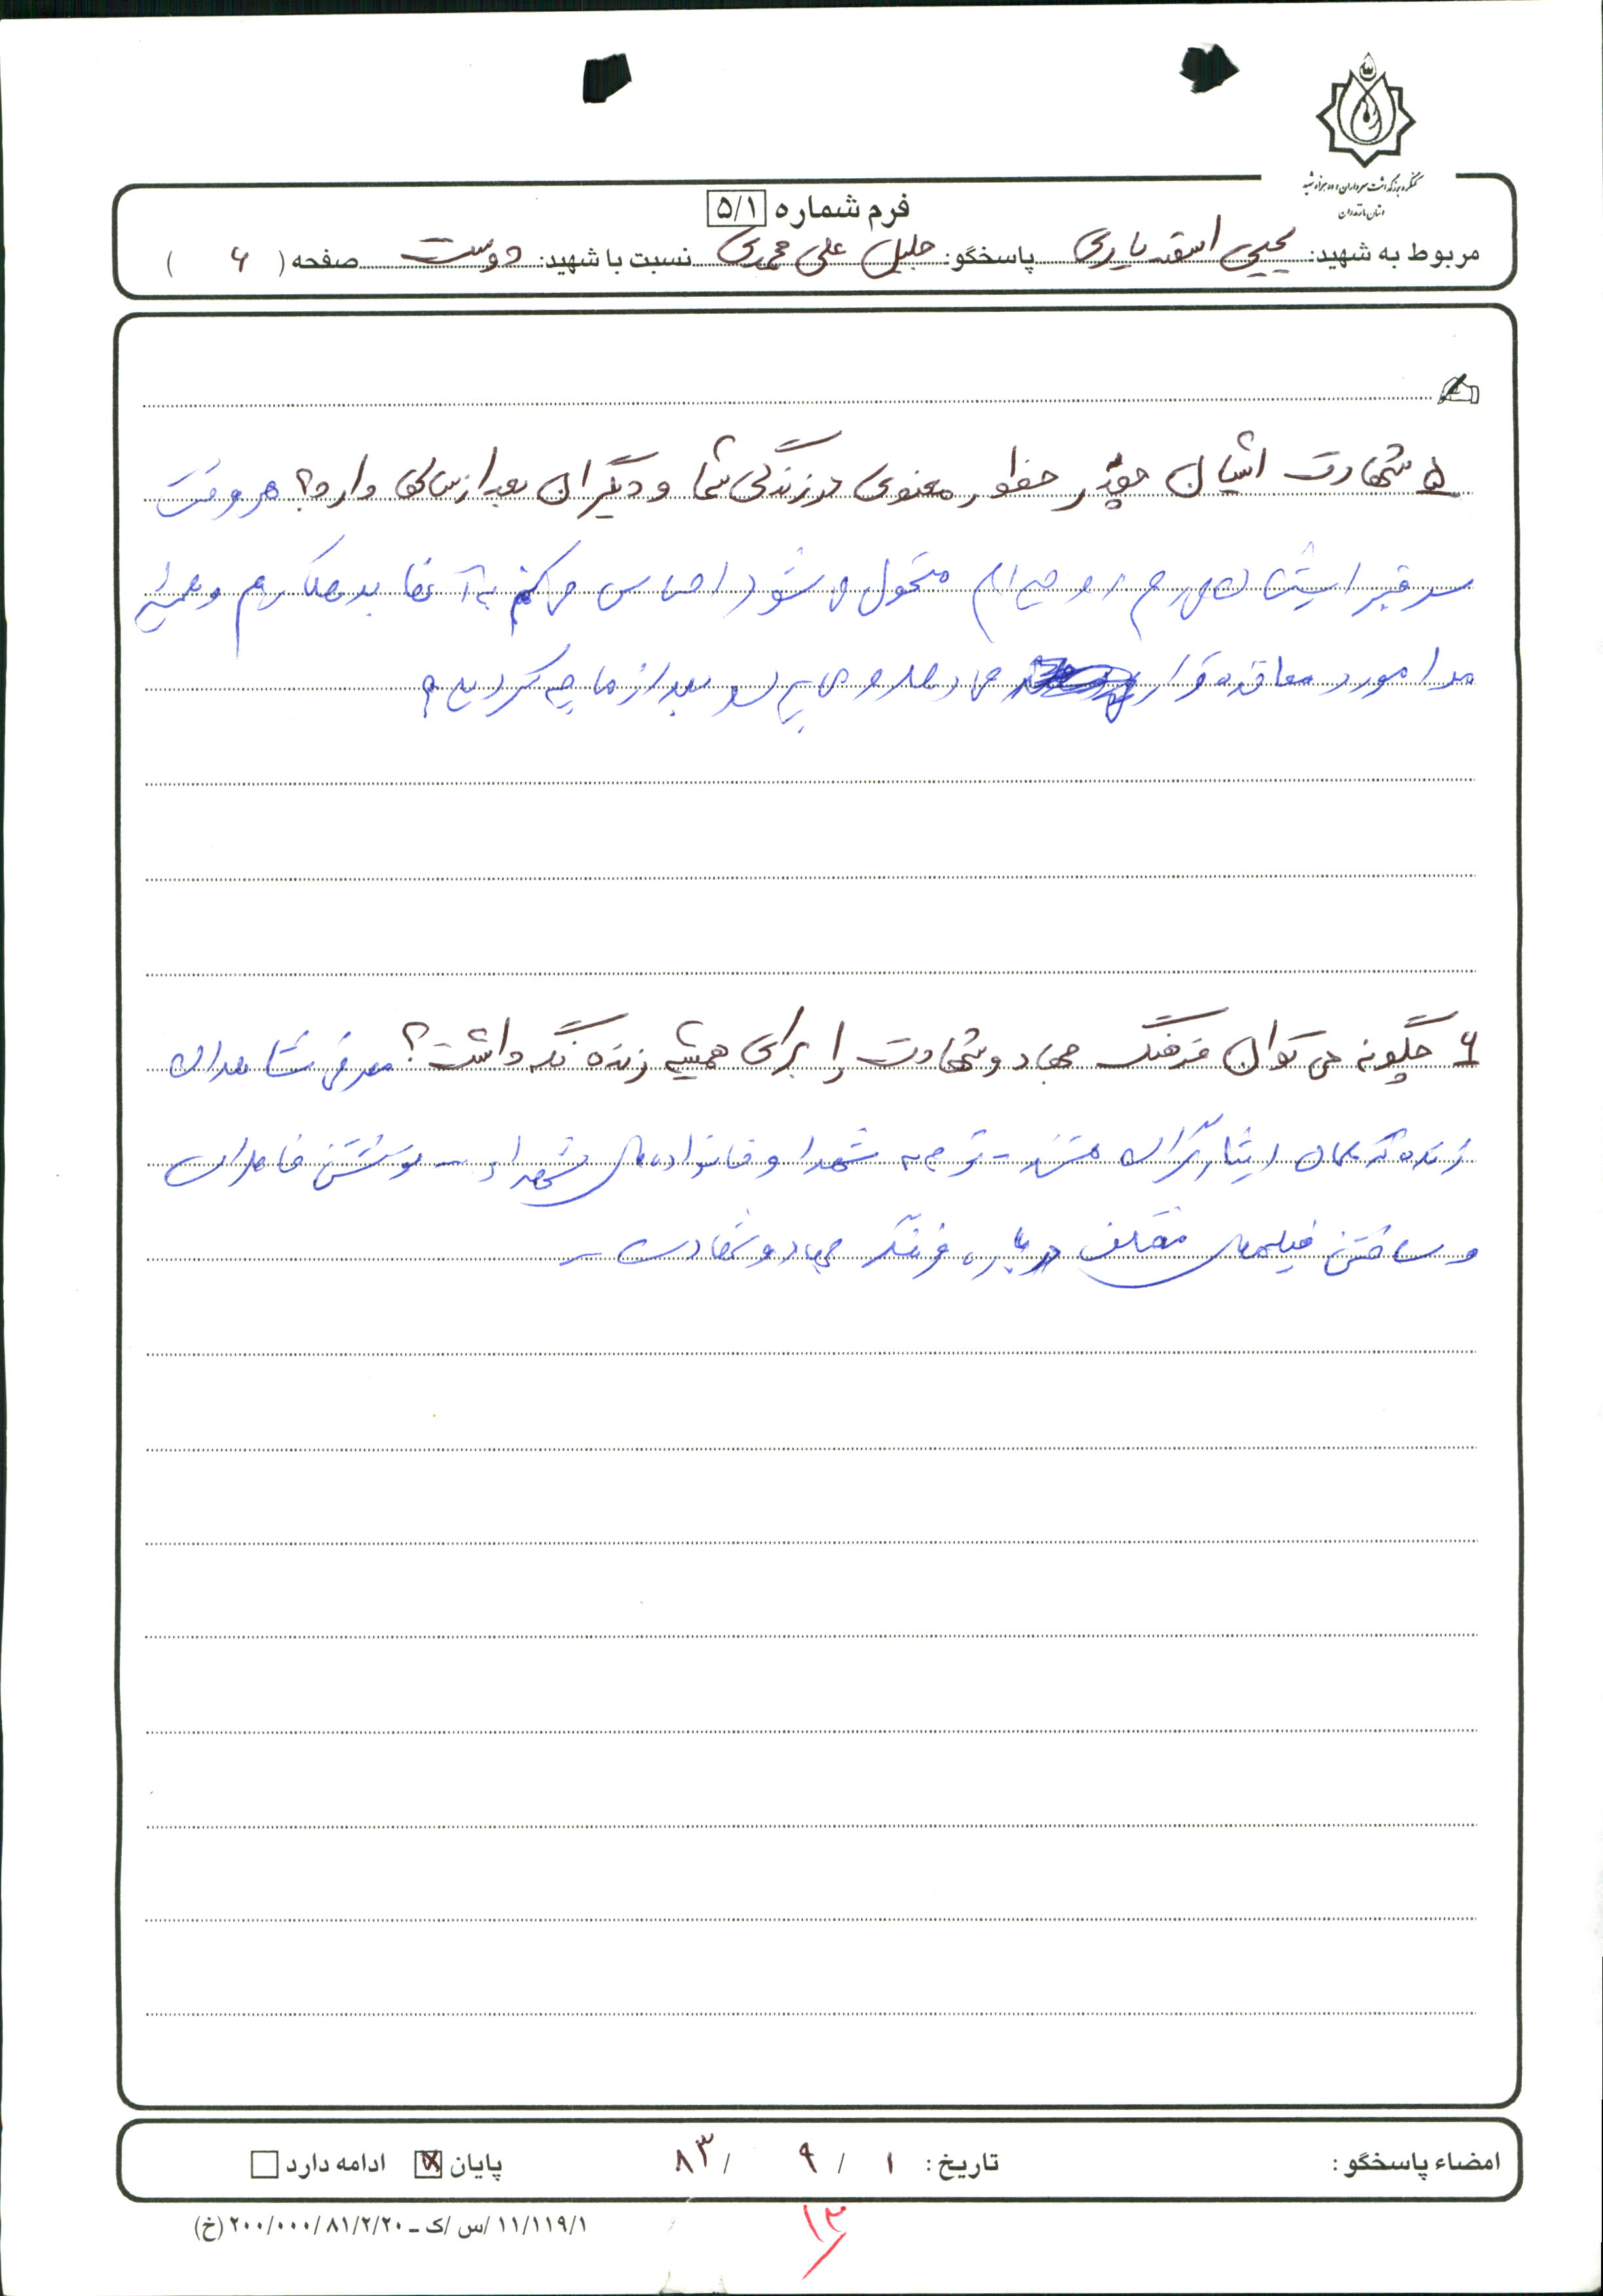 کنگره بزرگداشت سرداران و ده هزار شهید
استان مازندران
فرم شماره ۵/۱
مربوط به شهید: یحیی اسفندیاری پاسخگو: جلیل علی محمدی نسبت با شهید: دوست صفحه ( ۶ )
۵ شهادت ایشان چقدر حظور معنوی در زندگی شما و دیگران بعد از سالها دارد؟ هر وقت
سر قبر ایشان می روم روحیه ام متحول می شود احساس می کنم به آنها بدهکارم و همیشه
مرا مورد قرار می دهد و می پرسد بعد از ما چه کردید؟
۶ چگونه می توان فرهنگ جهاد و شهادت را برای همیشه زنده نگه داشت؟ معرفی شاهدان
زنده که همان ایثارگران هستند - توجه به شهدا و خانواده های شهدا - نوشتن خاطرات
و ساختن فیلمهای مختلف درباره فرهنگ جهاد و شهادت -
امضاء پاسخگو: تاریخ: ۱ / ۹ / ۸۳ پایان ادامه دارد
۱۱/۱۱۹/۱ /س /ک – ۲۰۰/۰۰۰/۸۱/۲/۲۰ (خ)
۱۳